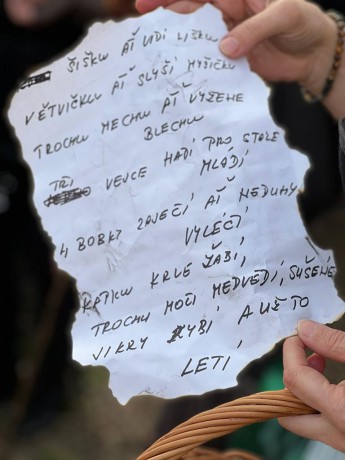 ŠIŠKU AŤ VIDÍ LIŠKU
VĚTVIČKU AŤ SLYŠÍ MYŠIČKU
TROCHU MECHU AŤ VYŽENE
BLECHU
TŘI VEJCE HADÍ PRO STÁLE
MLÁDÍ
4 BOBKY ZAJEČÍ AŤ NEDUHY
VYLÉČÍ
KAPKU KRVE ŽABÍ,
TROCHU MOČI MEDVĚDÍ, SUŠENÉ
JIKRY RYBÍ A UŽ TO
LETÍ